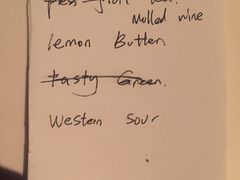 Mulled wine
Lemon Butter
Tasty Green
Western Sour